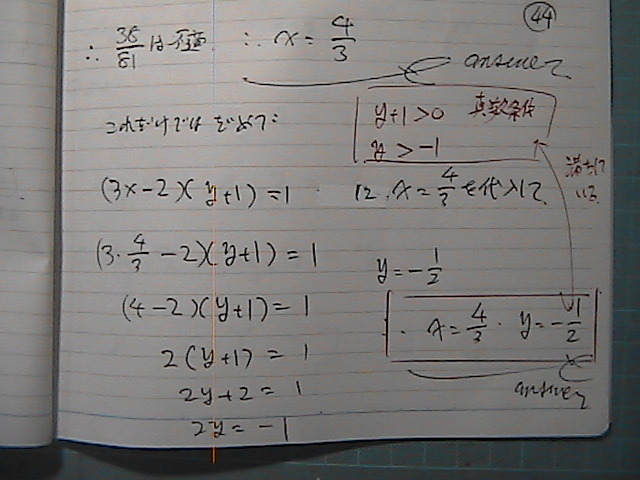 44
∴ 35/81 は不適 ∴ x = 4/3
answer
これだけではだめで:
y+1>0 真数条件
y>-1
満たしている
(3x-2)(y+1)=1 に x=4/3 を代入して
(3・4/3-2)(y+1)=1
(4-2)(y+1)=1
2(y+1)=1
2y+2=1
2y=-1
y=-1/2
∴ x=4/3・y=-1/2
answer